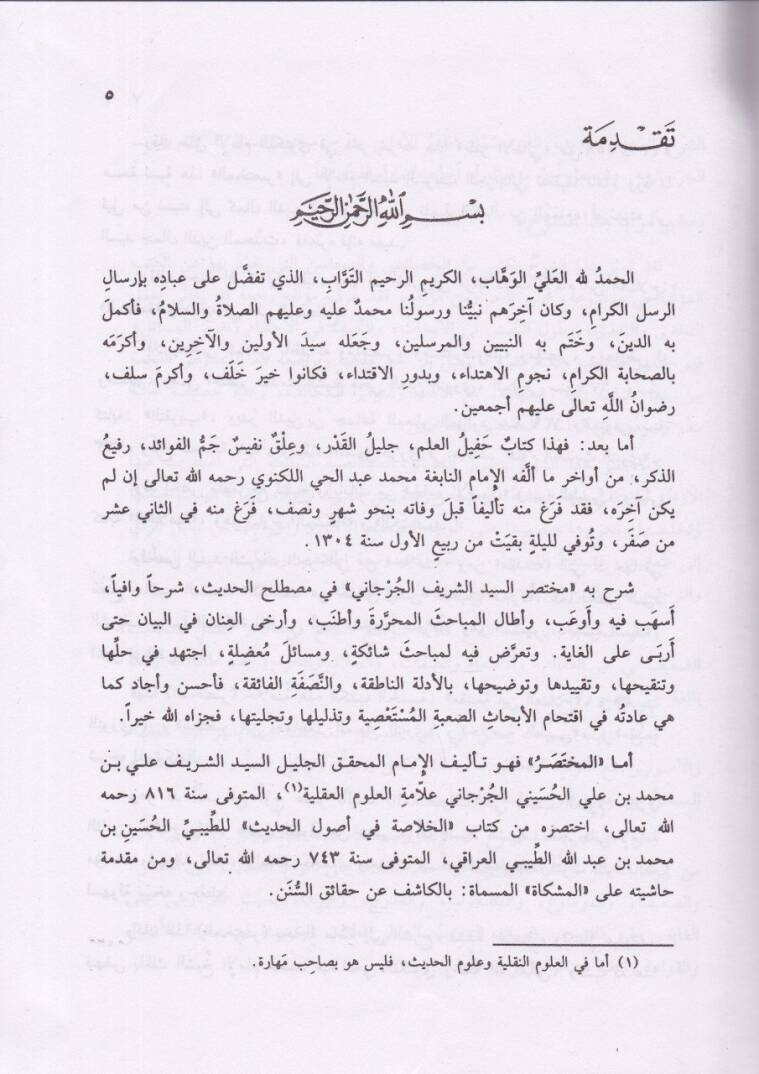 ٥
تَقدِمَة
بسم الله الرحمن الرحيم
الحمدُ لله العَليِّ الوَهَّاب، الكريمِ الرحيم التَوَّابِ، الذي تفضَّل على عبادِه بإرسالِ
الرسل الكرامِ، وكان آخِرَهم نبيُّنا ورسولُنا محمدٌ عليه وعليهم الصلاةُ والسلامُ، فأكملَ
به الدين، وخَتَم به النبيين والمرسلين، وجَعَله سيدَ الأولين والآخِرِين، وأكرَمَه
بالصحابة الكرامِ، نجومِ الاهتداء، وبدورِ الاقتداء، فكانوا خيرَ خَلَف، وأكرمَ سلف،
رضوانُ اللَّه تعالى عليهم أجمعين.
أما بعد: فهذا كتابٌ حَفِيلُ العلم، جليلُ القَدْر، وعِلْقٌ نفيسٌ جَمُّ الفوائد، رفيعُ
الذكر، من أواخر ما ألَّفه الإمام النابغة محمد عبد الحي اللكنوي رحمه الله تعالى إن لم
يكن آخِرَه، فقد فرَغ منه تأليفاً قبل وفاته بنحو شهرٍ ونصف، فرَغ منه في الثاني عشر
من صَفَر، وتُوفي لليلةٍ بقيَتْ من ربيعٍ الأول سنة ١٣٠٤.
شرح به «مختصر السيد الشريف الجُرْجاني» في مصطلح الحديث، شرحاً وافياً،
أسهَب فيه وأوعَب، وأطال المباحثَ المحرَّرةَ وأطنَب، وأرخى العِنان في البيان حتى
أربَى على الغاية. وتعرَّض فيه لمباحثَ شائكة، ومسائلَ مُعضِلةٍ، اجتهد في حلِّها
وتنقيحها، وتقييدها وتوضيحها، بالأدلة الناطقة، والنَّصَفَةِ الفائقة، فأحسن وأجاد كما
هي عادتُه في اقتحام الأبحاث الصعبةِ المُسْتَعْصِية وتذليلها وتجليتها، فجزاه الله خيراً.
أما «المختصَرُ» فهو تأليف الإمام المحقق الجليل السيد الشريف علي بن
محمد بن علي الحُسَيني الجُرْجاني علّامةِ العلوم العقلية(١)، المتوفى سنة ٨١٦ رحمه
الله تعالى، اختصره من كتاب «الخلاصة في أصول الحديث» للطِّيبيِّ الحُسَينِ بن
محمد بن عبد الله الطِّيبي العراقي، المتوفى سنة ٧٤٣ رحمه الله تعالى، ومن مقدمة
حاشيته على «المشكاة» المسماة: بالكاشف عن حقائق السُّنَن.
(١) أما في العلوم النقلية وعلوم الحديث، فليس هو بصاحب مَهارة.